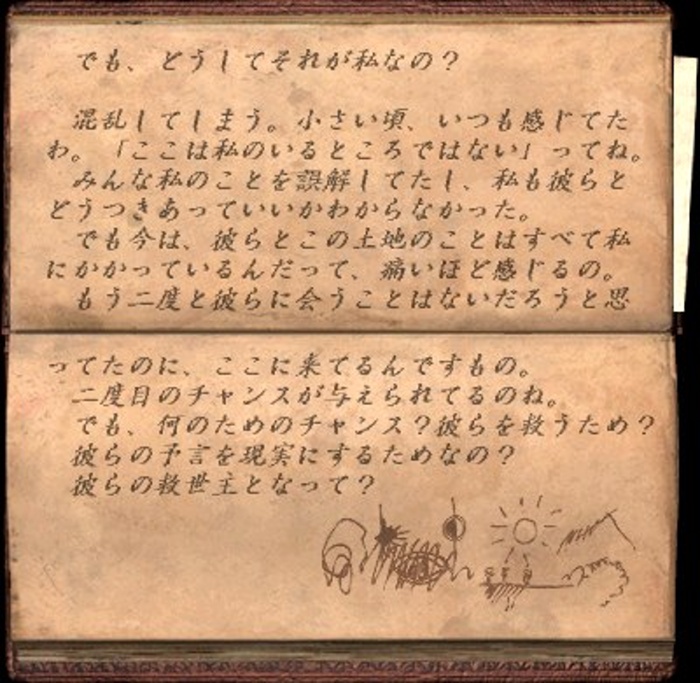 でも、どうしてそれが私なの？
混乱してしまう。小さい頃、いつも感じてた
わ。「ここは私のいるところではない」ってね。
みんな私のことを誤解してたし、私も彼らと
どうつきあっていいかわからなかった。
でも今は、彼らとこの土地のことはすべて私
にかかっているんだって、痛いほど感じるの。
もう二度と彼らに会うことはないだろうと思
ってたのに、ここに来てるんですもの。
二度目のチャンスが与えられてるのね。
でも、何のためのチャンス？彼らを救うため？
彼らの予言を現実にするためなの？
彼らの救世主となって？